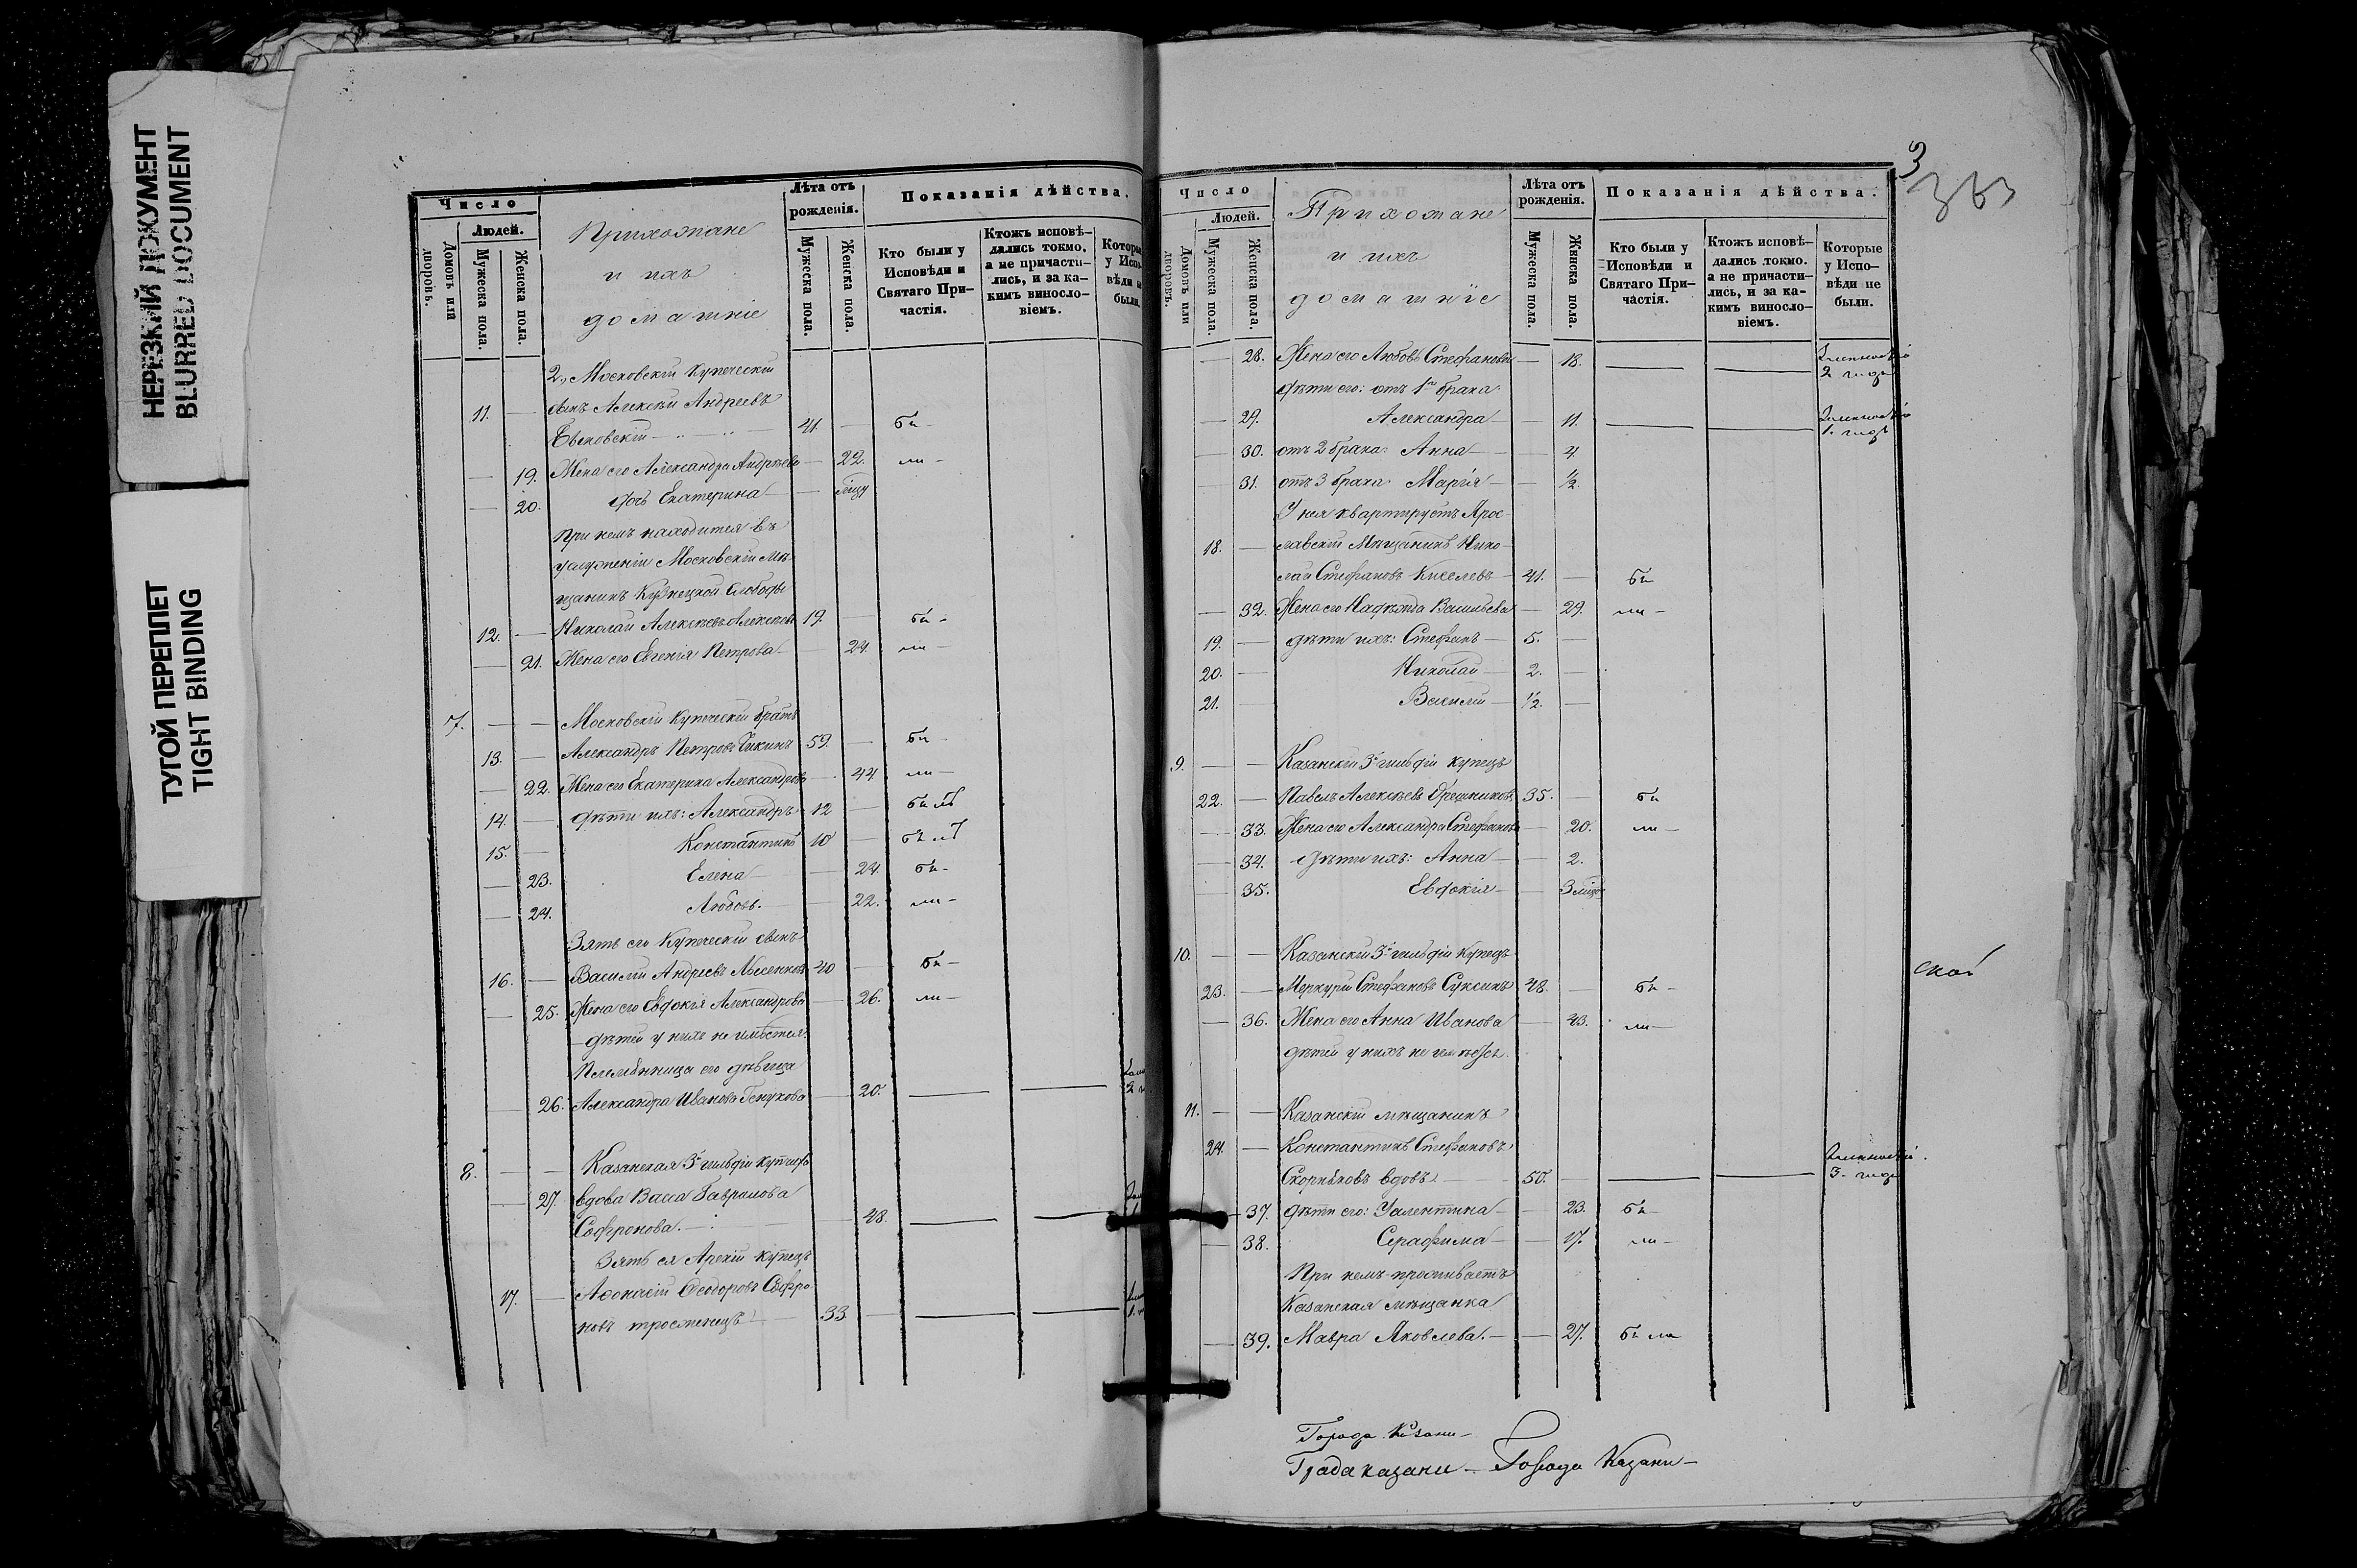 НЕРЕЗКИЙ ДОКУМЕНТ
BLURRED DOCUMENT
ТУГОЙ ПЕРЕПЛЕТ
TIGHT BINDING
Число
Людей.
Домовъ или дворовъ.
Мужеска пола.
Женска пола.
Прихожане
и ихъ
домашніе
Лѣта отъ рожденія.
Мужеска пола.
Женска пола.
Показанія дѣйства.
Кто были у Исповѣди и Святаго Причастія.
Ктожъ исповѣдались токмо, а не причастились, и за какимъ винословіемъ.
Которые у Испо-
вѣди не
были.
2., Московскій Купеческій
11. — сынъ Алексѣй Андреевъ
41 — бы-
— 19. Жена его Александра Андреева — 22. ли-
— 20. дочь Екатерина —
При немъ находится въ
услуженіи Московскій мѣ-
щанинъ Кузнецкой Слободы
12. — Николай Алексѣевъ Алексѣевъ 19. — бы-
— 21. Жена его Евгенія Петрова — 24 ли-
7. — — Московскій Купеческій братъ
13. — Александръ Петровъ 59. — бы-
— 22. Жена его Екатерина Александрова — 44 ли-
14. — дѣти ихъ: Александръ 12 —
15. — Константинъ 10 —
— 23. Елена — 24 бы-
— 24. Любовь. — 22. ли-
Зять его Купеческій сынъ
16. — Василій Андреевъ 40 — бы-
— 25. Жена его Евдокія Александрова — 26. ли-
дѣтей у нихъ не имѣется.
Племянница его дѣвица
26. Александра Иванова — 20.
8. — — Казанская 3й гильдіи
— 27. вдова Васса Гаврилова
Софронова. — 48.
Зять ея Купецъ
17. — Аѳонасій Ѳеодоровъ Софро-
новъ — 33
3
363
Число
Людей.
Домовъ или дворовъ.
Мужеска пола.
Женска пола.
Прихожане
и ихъ
домашніе
Лѣта отъ рожденія.
Мужеска пола.
Женска пола.
Показанія дѣйства.
Кто были у Исповѣди и Святаго Причастія.
Ктожъ исповѣдались токмо. а не причастились, и за какимъ винословіемъ.
Которые у Исповѣди не были.
— 28. Жена его Любовь Стефанова — 18. 2 года
дѣти его: отъ 1го брака:
— 29. Александра — 11. 1. годъ
— 30. отъ 2 брака: Анна — 4
— 31. отъ 3 брака: Марія — ½.
У нея квартируетъ Ярос-
18. — лавскій Мѣщанинъ Нико-
лай Стефановъ Киселевъ — 41. — бы
— 32. Жена его Надежда Васильева — 29. ли-
19. — дѣти ихъ: Стефанъ — 5. —
20. — Николай — 2. —
21. — Василій — ½. —
9. — — Казанскій 3й гильдіи Купецъ
22. — Павелъ Алексѣевъ Орешниковъ 35. — бы
— 33. Жена его Александра Стефанова — 20. ли-
— 34. дѣти ихъ: Анна — 2.
— 35. Евдокія —
10. — — Казанскій 3й гильдіи Купецъ
23. — Меркурій Стефановъ Суксинъ 48. — бы-
— 36. Жена его Анна Иванова — 43. ли-
дѣтей у нихъ не
11. — — Казанскій мѣщанинъ
24. — Константинъ Стефановъ
Скорняковъ вдовъ. — 50. 3. года
— 37. дѣти его: — 23. бы
— 38. Серафима — 17. ли-
При немъ проживаетъ
Казанская мѣщанка
— 39. Мавра Яковлева. — 27. бы ли
ской
Города Казани-
Града казани - Города Казани-